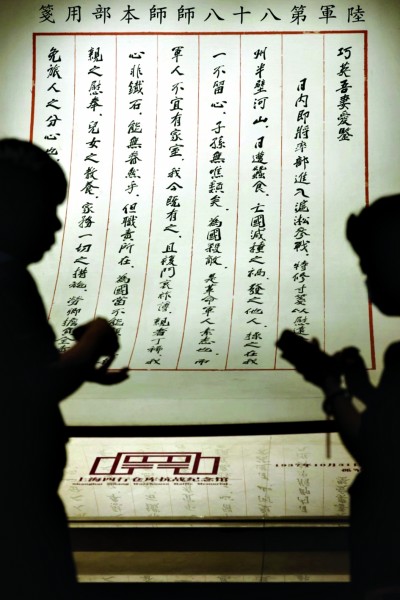 陸軍第八十八師師本部用箋
巧英吾妻愛鑒
日内即將率部進入滬淞參戰，特修寸箋以慰
州半壁河山，日遭蠶食，亡國滅種之禍，發之他人，操之在我
一不留心，子孫無噍類矣，為國殺敵，是革命軍人素志也，而
軍人不宜有家室，我今既有之，且復門衰祚薄，親者丁稀，我
心非鐵石，能無眷然乎，但職責所在，為國當不能
親之慰奉，兒女之教養，家務一切之措施，勞卿擔負
免旅人之分心也
上海四行仓库抗战纪念馆
Shanghai Sihang Warehouse Battle Memorial
1937年10月31日